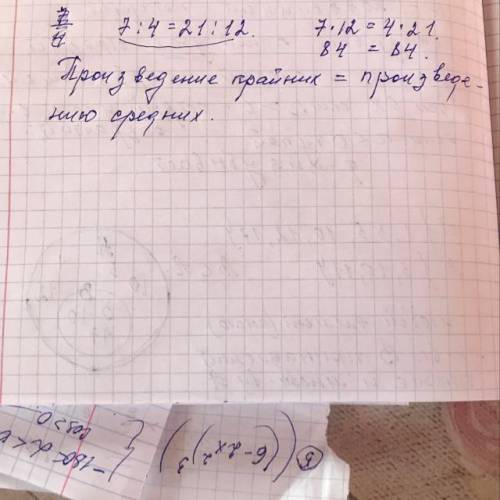 7 : 4 = 21 : 12. 7 · 12 = 4 · 21.
84 = 84.
Произведение крайних = произведе-
нию средних.
Б) ((6 - 2x²)³)